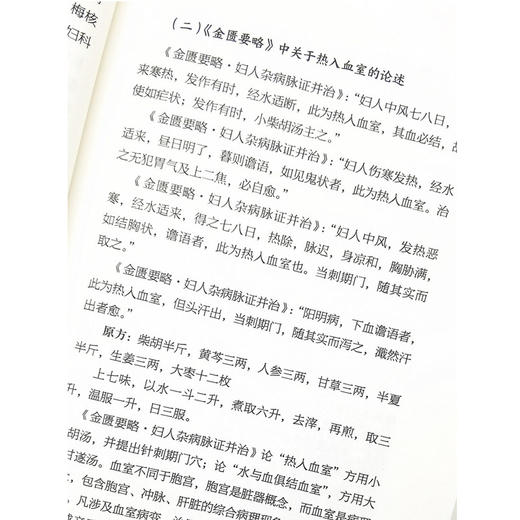 梅核
妇科
(二)《金匮要略》中关于热入血室的论述
《金匮要略·妇人杂病脉证并治》：“妇人中风七八日，
来寒热，发作有时，经水适断，此为热入血室，其血必结，故
使如疟状；发作有时，小柴胡汤主之。”
《金匮要略·妇人杂病脉证并治》：“妇人伤寒发热，经水
适来，昼日明了，暮则谵语，如见鬼状者，此为热入血室。治
之无犯胃气及上二焦，必自愈。”
《金匮要略·妇人杂病脉证并治》：“妇人中风，发热恶
寒，经水适来，得之七八日，热除，脉迟，身凉和，胸胁满，
如结胸状，谵语者，此为热入血室也。当刺期门，随其实而
取之。”
《金匮要略·妇人杂病脉证并治》：“阳明病，下血谵语者，
此为热入血室，但头汗出，当刺期门，随其实而泻之，濈然汗
出者愈。”
原方：柴胡半斤，黄芩三两，人参三两，甘草三两，半夏
半斤，生姜三两，大枣十二枚
上七味，以水一斗二升，煮取六升，去滓，再煎，取三
升，温服一升，日三服。
《金匮要略·妇人杂病脉证并治》论“热入血室”方用小
胡汤，并提出针刺期门穴；论“水与血俱结血室”，方用大
甘遂汤。血室不同于胞宫，胞宫是脏器概念，而血室是
，包含胞宫、冲脉、肝脏的综合病理现
，凡涉及血室病变